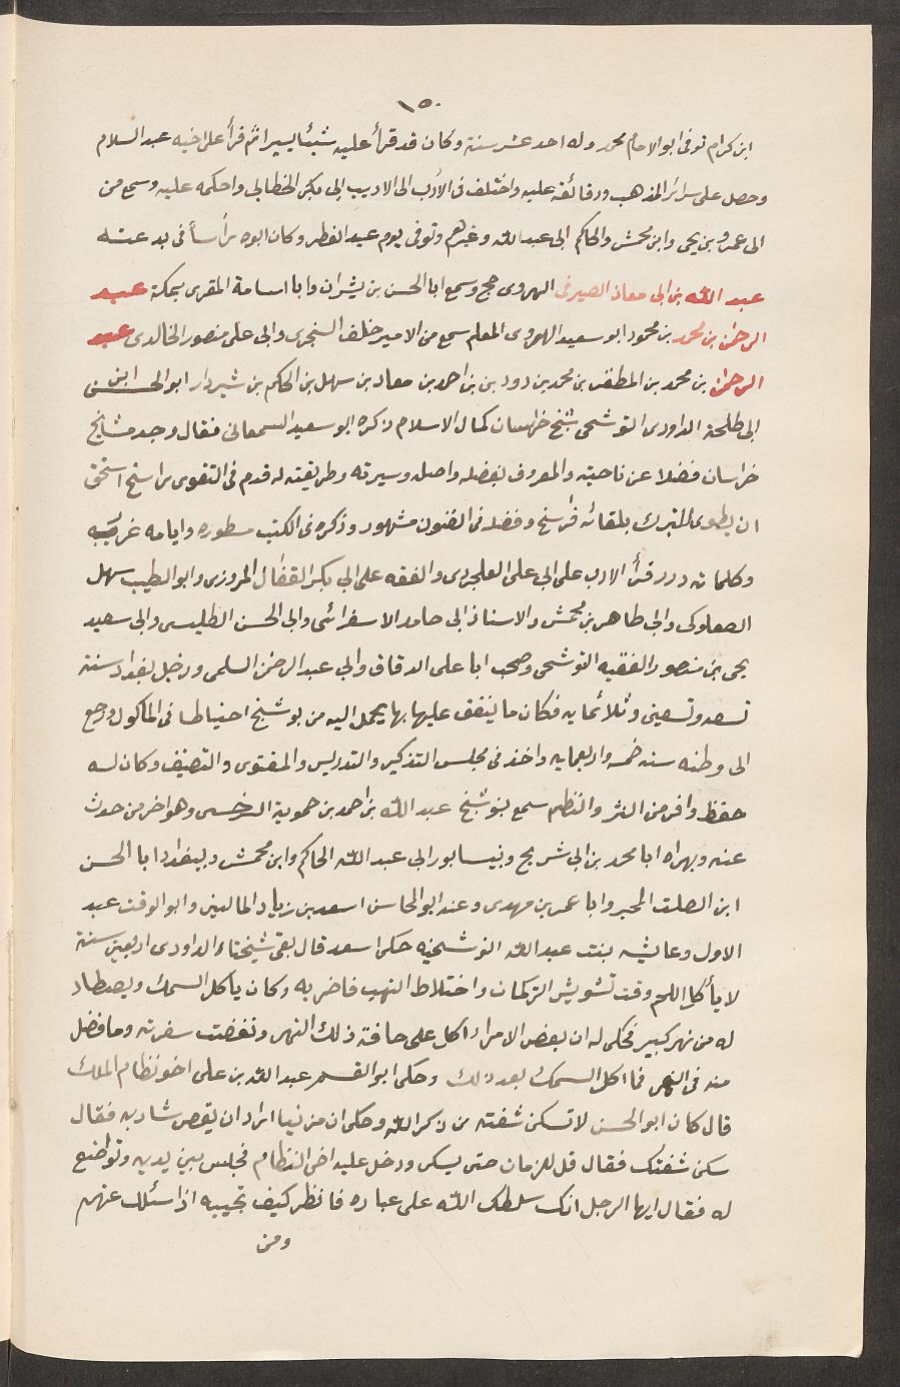 ١٥٠
ابن كرام توفى ابو الامام محمد وله احد عشر سنة وكان قد قرأ عليه شيئا يسيرا ثم قرأ على اخيه عبد السلام
وحصل على سرائر المذهب ودقائقه عليه واختلف فى الأدب الى الاديب ابى بكر الخطابى واحكمه عليه وسمع من
ابى عمرو بن يحى وابن محمش والحاكم ابى عبد الله وغيرهم وتوفى يوم عيد الفطر وكان ابوه رأسا فى بدعته
عبد الله بن ابى معاذ الصيرفى الهروى حج وسمع ابا الحسن بن بشران وابا اسامة المقرى بمكة عبد
الرحمن بن محمد بن محمود ابو سعيد الهروى المعلم سمع من الامير خلف السنجرى وابى على منصور الخالدى عبد
الرحمن بن محمد بن المظفر بن محمد بن دود بن بن احمد بن معاد بن سهل بن الحاكم بن شيردار ابو الحسن ابن
ابى طلحة الداودى البوشنجى شيخ خراسان كمال الاسلام ذكره ابو سعيد السمعانى فقال وجد مشايخ
خراسان فضلا عن ناحيته والمعروف بفضله واصله وسيرته وطريقته له قدم فى التقوى راسخ استحق
ان يطوى للتبرك بلقائه فراسخ وفضله فى الفنون مشهور وذكره فى الكتب مسطوره وايامه غرر
وكلماته درر قرأ الادب على ابى على الفلجردى والفقه على ابى بكر القفال المروزى وابو الطيب سهل
الصعلوكى وابى طاهر بن محمش والاستاذ ابى حامد الاسفرائنى وابى الحسن الطبسى وابى سعيد
يحى بن منصور الفقيه البوشنجى وصحب ابا على الدقاق وابى عبد الرحمن السلمى ودخل بغداد سنة
تسعه وتسعين وثلاثمايه فكان ما ينفق عليها بها يحمل اليه من بوشنج احتياطا فى المأكول ورجع
الى وطنه سنه خمسه واربعمايه واخذ فى مجلس التذكير والتدريس والفتوى والتصنيف وكان له
حفظ وافر من النثر والنظم سمع ببوشنج عبد الله بن احمد بن حموية السرخسى وهو اخر من حدث
عنه وبهراه ابا محمد بن ابى شريح ونيسابور ابى عبد الله الحاكم وابن محمش وببغداد ابا الحسن
ابن الصلت المجبر وابا عمر بن مهدى وعند ابو المحاسن اسعد بن زياد المالينى وابو الوقت عبد
الاول وعايشه بنت عبد الله البوشنجيه حكى اسعد قال بقى شيخنا الداودى اربعين سنة
لا يأكل اللحم وقت تشويش التركمان واختلاط النهب فاضر به وكان يأكل السمك ويصطاد
له من نهر كبير فحكى له ان بعض الامراء اكل على حافة ذلك النهر ونفضت سفرته وما فضل
منه فى النهر فما اكل السمك بعد ذلك وحكى ابو القسم عبد الله بن على اخو نظام الملك
قال كان ابو الحسن لا تسكن شفته من ذكر الله وحكى ان مزينا اراد ان يقص شاربه فقال
سكن شفتك فقال قل للزمان حتى يسكن ودخل عليه اخى النظام فجلس بين يديه وتواضع
له فقال ايها الرجل انك سلطك الله على عباده فانظر كيف تجيبه اذا سئلك عنهم
ومن